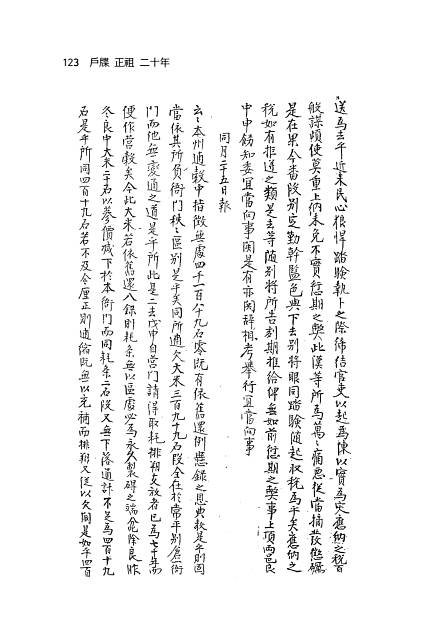 123 戶牒 正祖 二十年
送爲去乎近來民心狠悍踏驗執卜之際締結官吏以起爲陳以實爲灾應納之稅百
般謀頉使莫重上納未免不實愆期之弊此漢等所爲萬〻痛惡從當摘發懲礪
是在果今番段別定勤幹監色與下去別將眼同踏驗隨起收稅爲乎矣應納之
稅如有拒逆之類是去等隨別將所告刻期推給俾無如前愆期之弊事上項兩邑良
中申飭知委宜當向事關是有亦關辭相考擧行宜當向事
同月二十五日報
云〻本州逋穀中指徵無處四千一百八十九石零旣有依舊還例懸錄之恩典敎是乎則固
當依其所負衙門秩〻區別是乎矣同所逋欠大米三百九十九石段全在於常平別倉衙
門而他無變通之道是乎所此是二去戊申自營門請得取耗排朔支放者已爲七十石而
便作營穀矣今此大米若依舊還入錄則耗条無以區處必爲永久製碍之端兺除良昨
冬良中大米二十石以蔘價減下於本衙門而同耗条二石段又無下落通計不足爲四百十九
石是乎所同四百十九石若不及今厘正則逋縮旣無以充補而排朔又從以欠闕是如乎四百